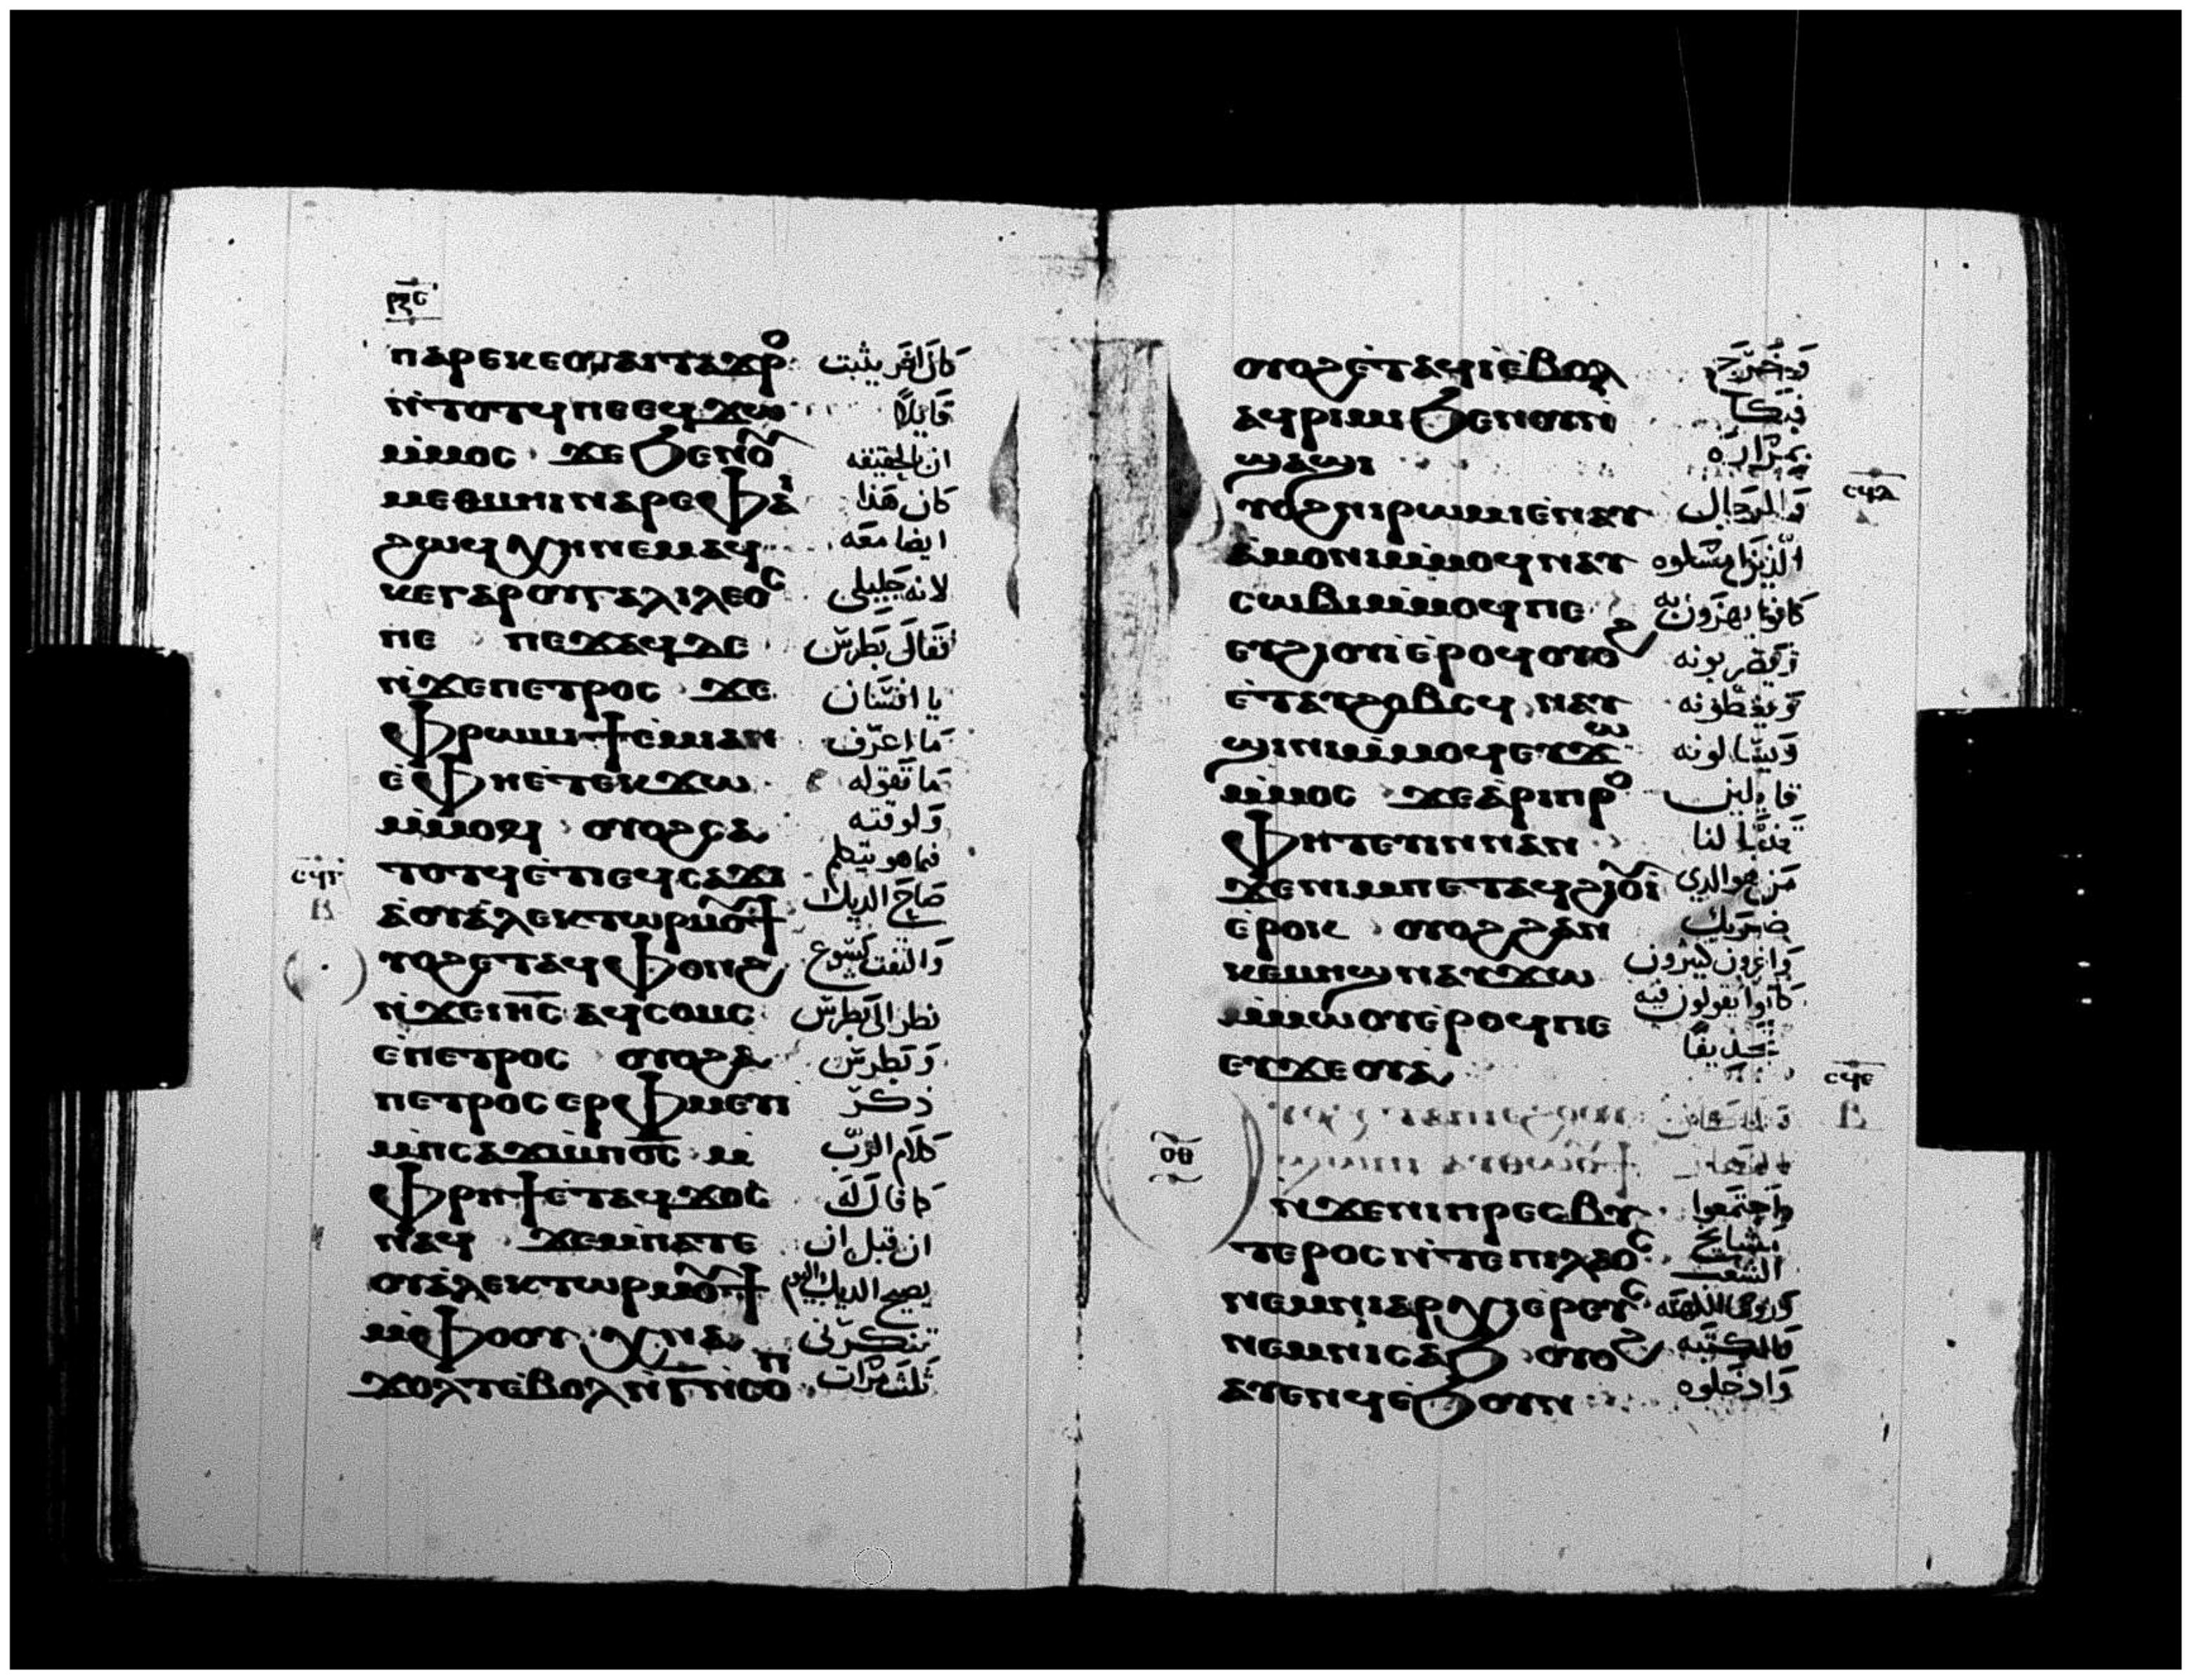 ⲣⲝⲋ
ⲛⲁⲣⲉⲕⲉⲟⲩⲁⲓⲧⲁϫⲣⲟ كان اخر يثبت
ⲛ̀ⲧⲟⲧϥⲡⲉⲉϥϫⲱ قايلا
ⲙ̀ⲙⲟⲥ ϫⲉϧⲉⲛⲟⲩ ان بالحقيقه
ⲙⲉⲑⲙⲏⲓⲛⲁⲣⲉⲫⲁⲓ كان هذا
ϩⲱϥⲭⲏⲛⲉⲙⲁϥ ايضا معه
ⲕⲉⲅⲁⲣⲟⲩⲅⲁⲗⲓⲗⲉⲟⲥ لانه جليلي
ⲡⲉ ⲡⲉϫⲁϥⲇⲉ فقال بطرس
ⲛ̀ϫⲉⲡⲉⲧⲣⲟⲥ ϫⲉ يا انسان
ⲫⲣⲱⲙⲓϯⲉ̀ⲙⲓⲁⲛ ما اعرف
ⲉ̀ⲫⲏⲉ̀ⲧⲉⲕϫⲱ ما تقوله
ⲙ̀ⲙⲟϥ ⲟⲩⲟϩⲥⲁ ولوقته
ⲧⲟⲧϥⲉ̀ⲧⲓⲉϥⲥⲁϫⲓ فيما هو يتكلم
ⲥϥⲅ
ⲃ
ⲁ̀ⲟⲩⲁ̀ⲗⲉⲕⲧⲱⲣⲙⲟⲩϯ صاح الديك
ⲩⲟϩⲉⲧⲁϥⲫⲟⲛϩ والتفت يسوع
ⲛ̀ϫⲉⲓⲏⲥ ⲁϥⲥⲟⲙⲥ نظر الى بطرس
ⲉ̀ⲡⲉⲧⲣⲟⲥ ⲟⲩⲟϩⲁ وبطرس
ⲡⲉⲧⲣⲟⲥⲉⲣⲫⲙⲉⲩⲓ ذكر
ⲙ̀ⲡⲥⲁϫⲓⲙ̀ⲡⲟ̅ⲥ̅ ⲙ̀ كلام الرب
ⲫⲣⲏϯⲉ̀ⲧⲁϥϫⲟⲥ كما قال له
ⲛⲁϥ ϫⲉⲙ̀ⲡⲁⲧⲉ ان قبل ان
ⲟⲩⲁ̀ⲗⲉⲕⲧⲱⲣⲙⲟⲩϯ يصيح الديك اليوم
ⲙ̀ⲫⲟⲟⲩ ⲭⲛⲁ تنكرني
ϫⲟⲗⲧⲉ̀ⲃⲟⲗⲛ̀ⲅ̅ⲛ̀ⲥⲟⲡ ثلث مرات
ⲟⲩⲟϩⲉ̀ⲧⲁϥⲓⲉ̀ⲃⲟⲗ وخرج
ⲁϥⲣⲓⲙⲓϧⲉⲛⲟⲩⲓ فبكا
ϣⲁϣⲓ بمراره
ⲥϥⲇ
ⲩⲟϩⲛⲓⲣⲱⲙⲓⲉ̀ⲛⲁⲩ والرجال
ⲁ̀ⲙⲟⲛⲓⲙ̀ⲙⲟϥⲛⲁⲩ الذين امسكوه
ⲥⲱⲃⲓⲙ̀ⲙⲟϥⲡⲉ كانوا يهزون به
ⲉⲩϩⲓⲟⲩⲓⲉ̀ⲣⲟϥⲟⲩⲟϩ ويضربونه
ⲉ̀ⲧⲁⲩϩⲟⲃⲥϥ ⲛⲁⲩ ويغطونه
ϣⲓⲛⲓⲙ̀ⲙⲟϥⲉⲩϫⲱ ويسالونه
ⲙ̀ⲙⲟⲥ ϫⲉⲁ̀ⲣⲓⲡⲣⲟ قايلين
ⲫⲏⲧⲉⲩⲓⲛⲛⲁⲛ تنبا لنا
ϫⲉⲛⲓⲙⲡⲉⲧⲁϥϩⲓⲟⲩⲓ من هو الذي
ⲉ̀ⲣⲟⲕ ⲟⲩⲟϩϩⲁⲛ ضربك
ⲕⲉⲙⲏϣⲛⲁⲩϫⲱ واخرون كثيرون
ⲙ̀ⲙⲱⲟⲩⲉ̀ⲣⲟϥⲡⲉ كانوا يقولون فيه
ⲉⲩϫⲉⲟⲩⲁ تجديفا
ⲥϥⲉ
ⲃ
ⲟⲑ
ⲛ̀ϫⲉⲛⲓⲡⲣⲉⲥⲃⲩ واجتمعوا
ⲧⲉⲣⲟⲥⲛ̀ⲧⲉⲡⲓⲗⲁⲟⲥ مشايخ الشعب
ⲛⲉⲙⲛⲓⲁⲣⲭⲓⲉⲣⲉⲩⲥ وروسا الكهنه
ⲛⲉⲙⲛⲓⲥⲁϧ ⲟⲩⲟϩ والكتبه
ⲁⲩⲉⲛϥⲉ̀ϧⲟⲩⲛ وادخلوه